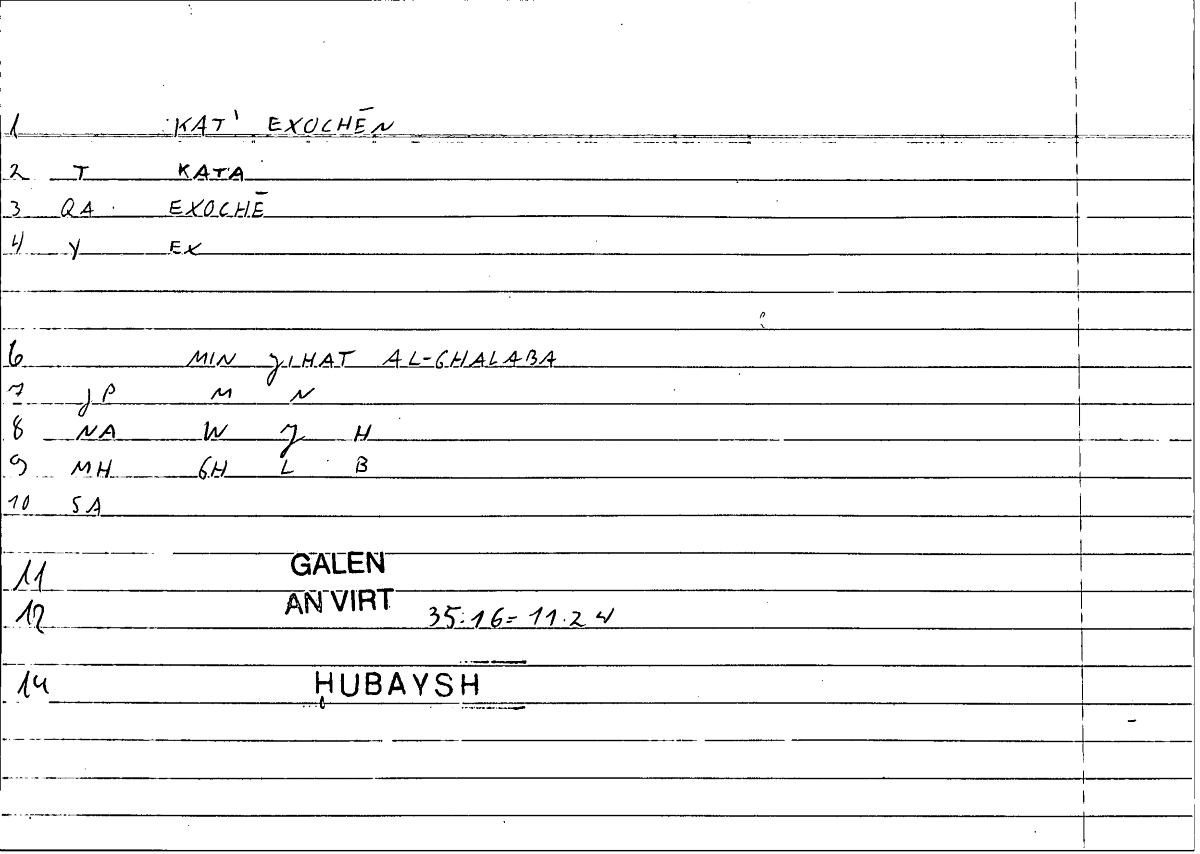 1 KAT' EXOCHĒN
2 T KATA
3 QA EXOCHĒ
4 Y EX
6 MIN JIHAT AL-GHALABA
7 JP M N
8 NA W J H
9 MH GH L B
10 SA
11 GALEN
12 AN VIRT 35.16= 11.24
14 HUBAYSH